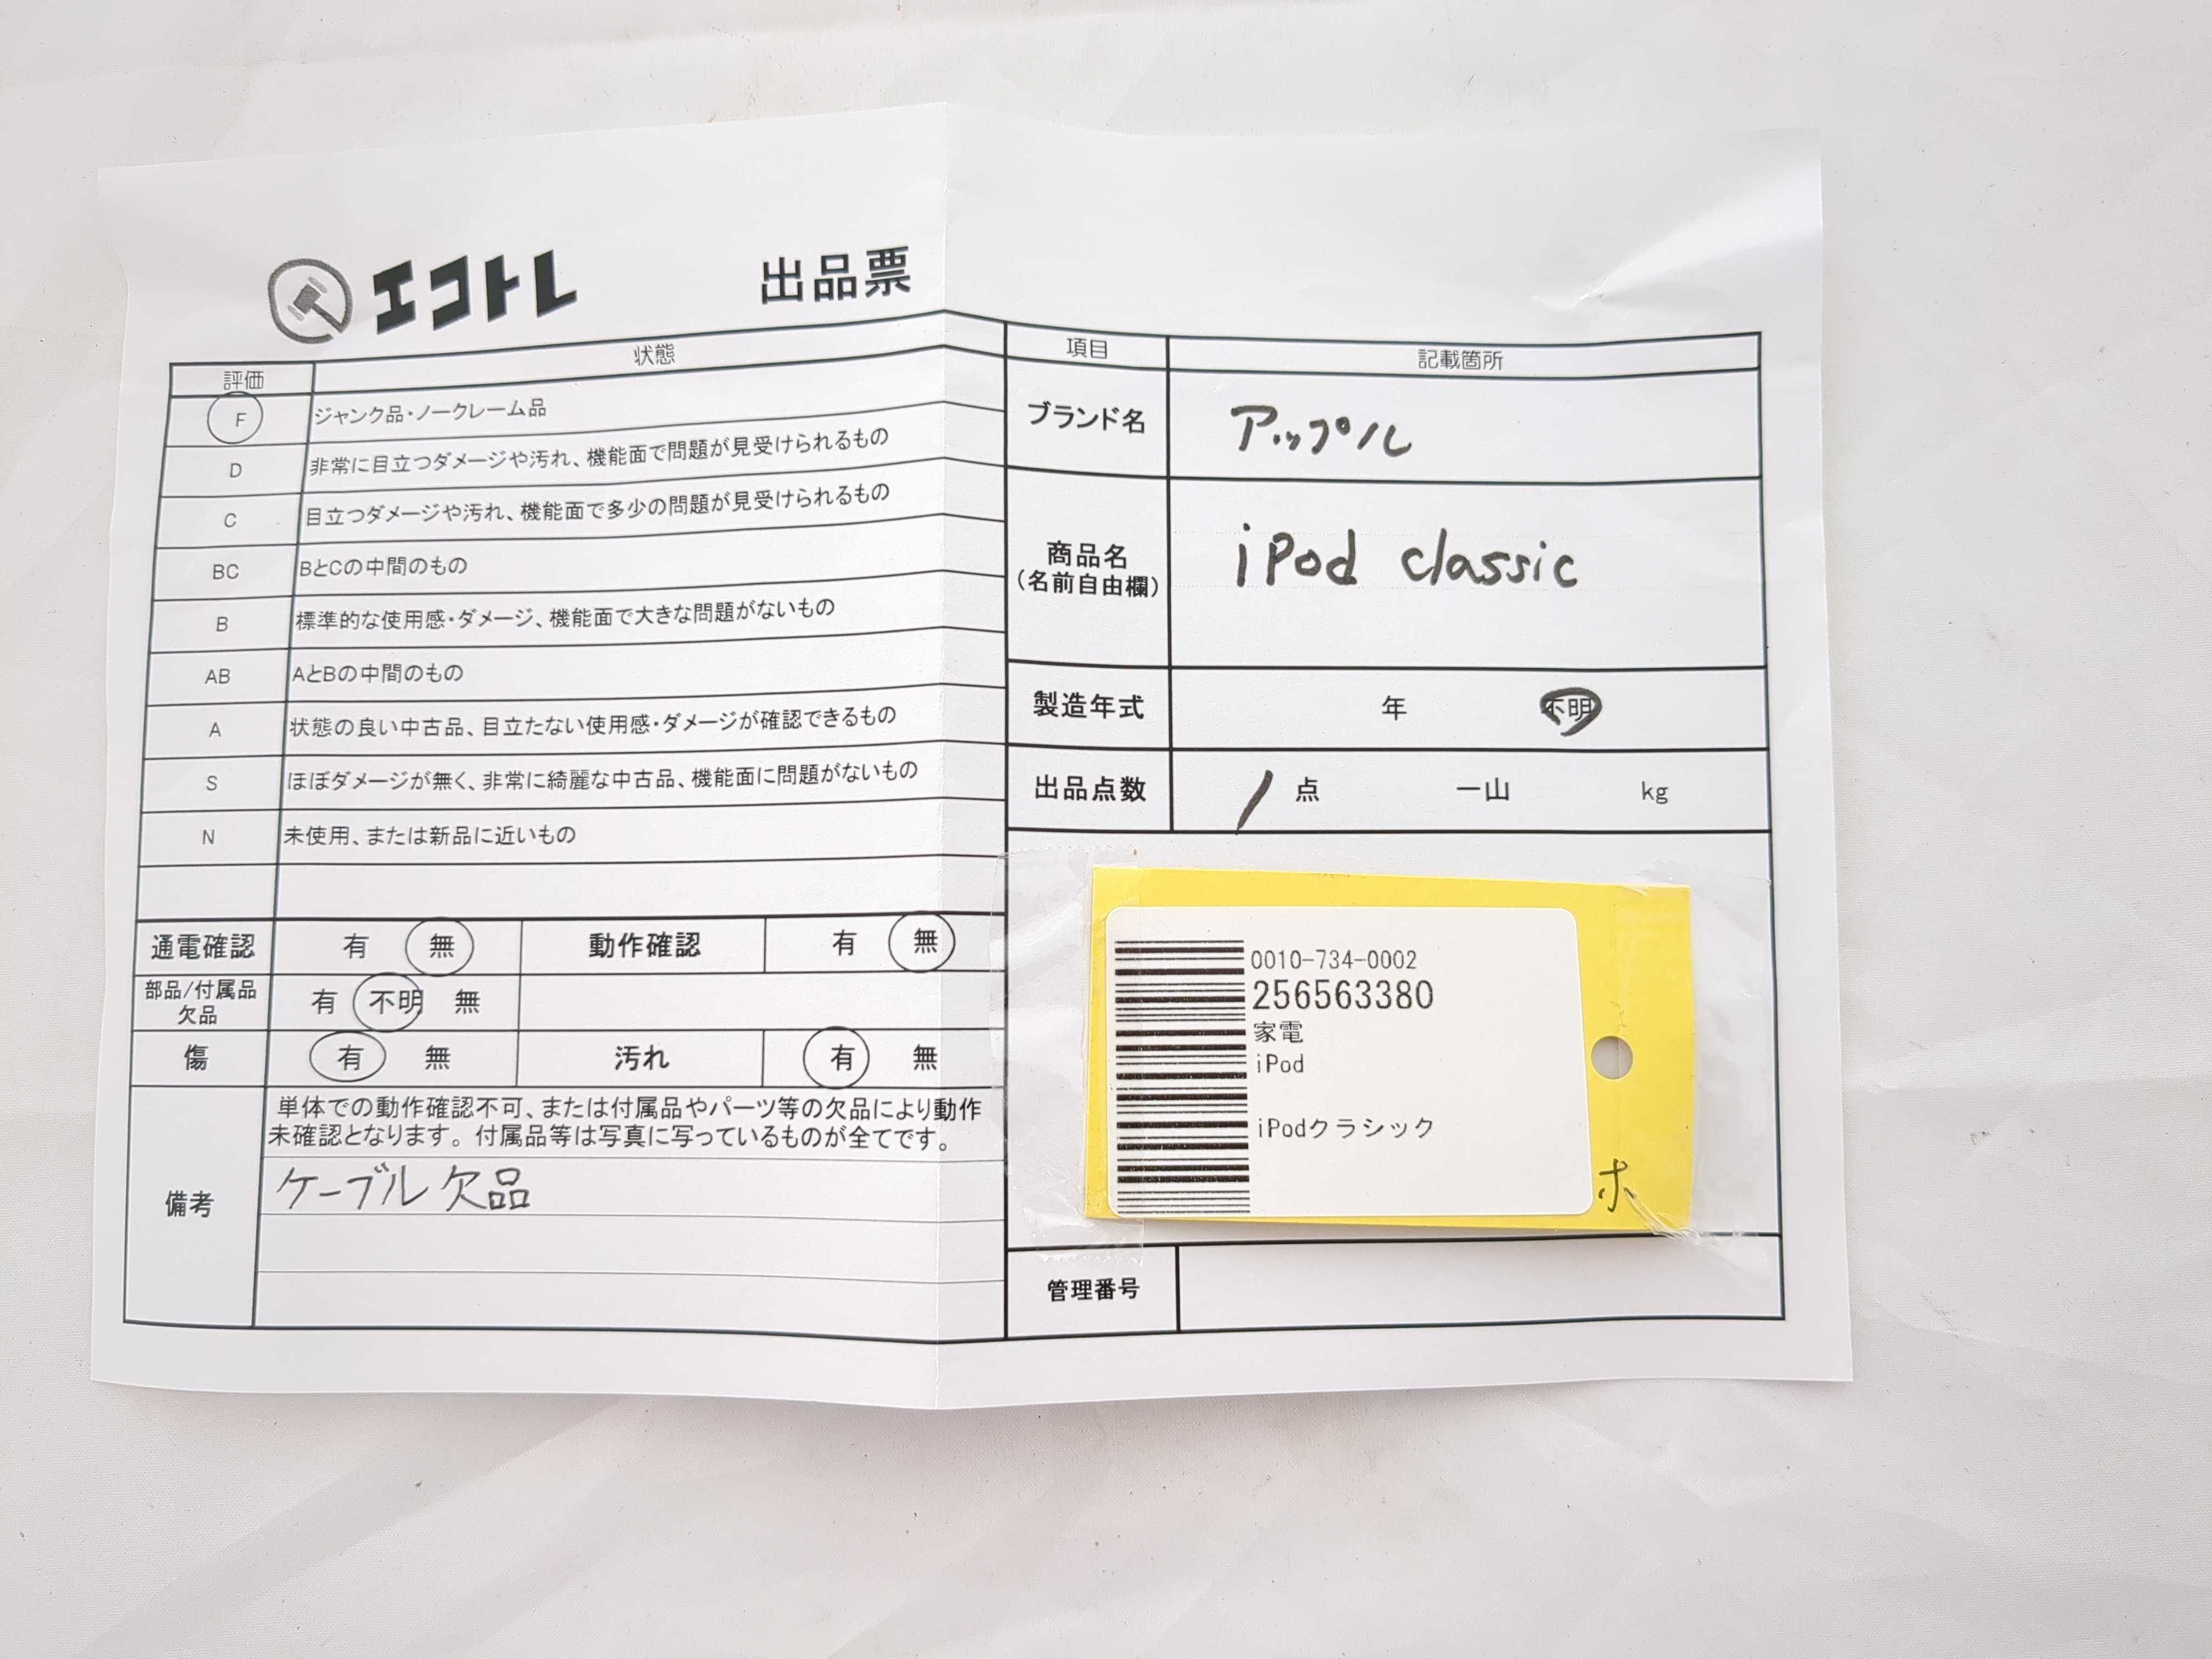 エコトレ 出品票
評価 状態
F ジャンク品・ノークレーム品
D 非常に目立つダメージや汚れ、機能面で問題が見受けられるもの
C 目立つダメージや汚れ、機能面で多少の問題が見受けられるもの
BC BとCの中間のもの
B 標準的な使用感・ダメージ、機能面で大きな問題がないもの
AB AとBの中間のもの
A 状態の良い中古品、目立たない使用感・ダメージが確認できるもの
S ほぼダメージが無く、非常に綺麗な中古品、機能面に問題がないもの
N 未使用、または新品に近いもの
通電確認 有 無 動作確認 有 無
部品/付属品
欠品 有 不明 無
傷 有 無 汚れ 有 無
備考
単体での動作確認不可、または付属品やパーツ等の欠品により動作
未確認となります。付属品等は写真に写っているものが全てです。
ケーブル欠品
項目 記載箇所
ブランド名 アップル
商品名
(名前自由欄) iPod classic
製造年式 年 不明
出品点数 1 点 一山 kg
0010-734-0002
256563380
家電
iPod
iPodクラシック
ホ
管理番号